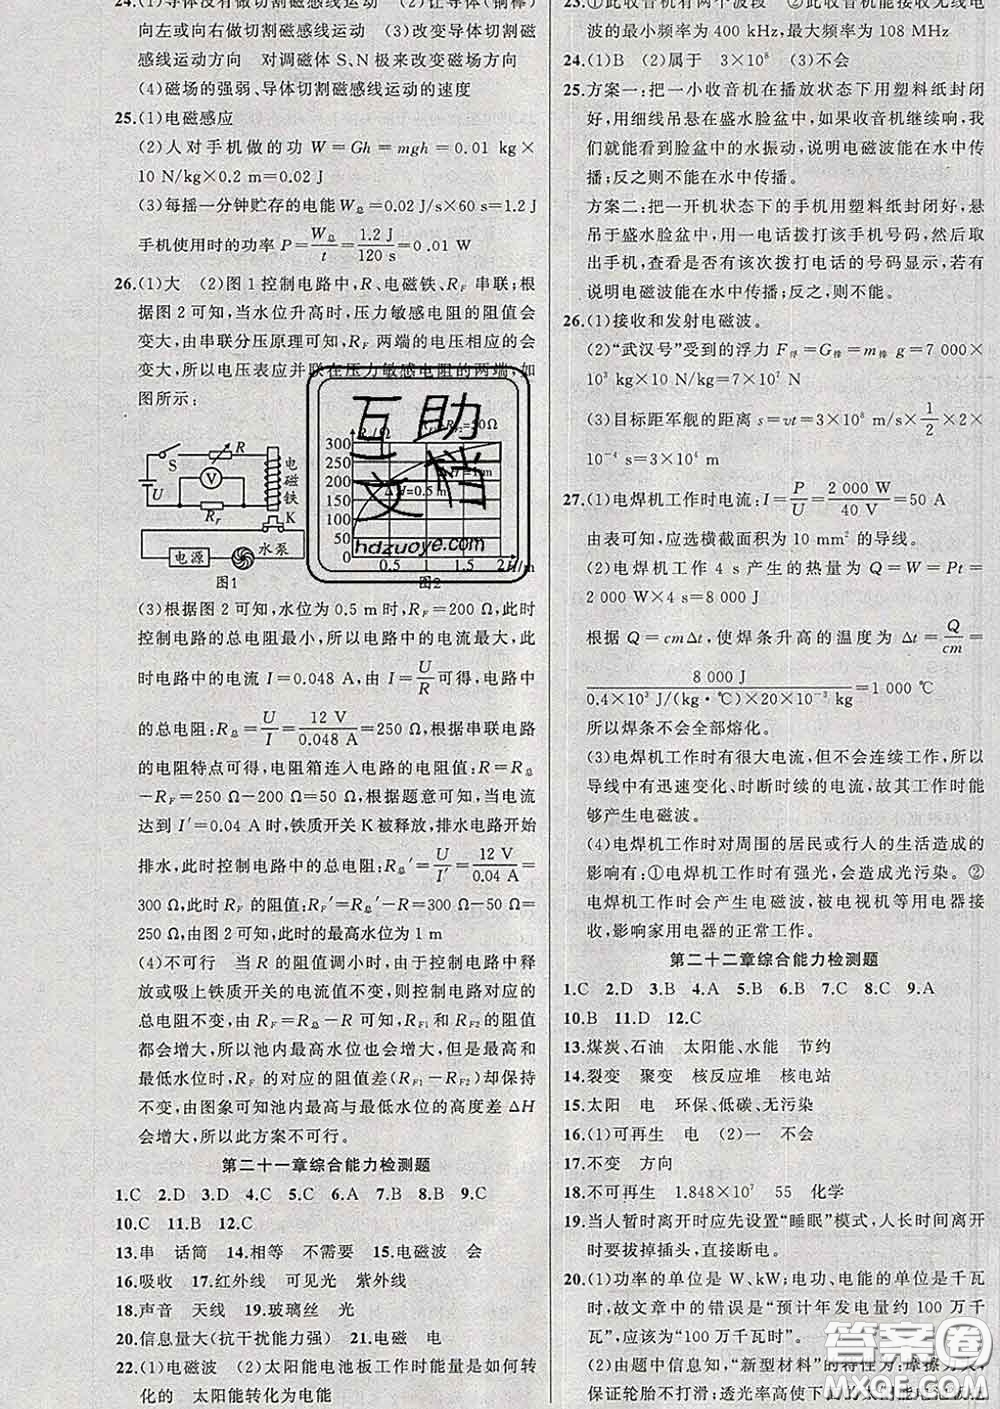 24.(1)导体没有做切割磁感线运动 (2)让导体(铜棒)
向左或向右做切割磁感线运动 (3)改变导体切割磁
感线运动方向 对调磁体 S、N极来改变磁场方向
(4)磁场的强弱、导体切割磁感线运动的速度
25.(1)电磁感应
(2)人对手机做的功 W=Gh=mgh=0.01 kg×
10 N/kg×0.2 m=0.02 J
(3)每摇一分钟贮存的电能W总=0.02 J/s×60 s=1.2 J
手机使用时的功率 P=W总/t=1.2 J/120 s=0.01 W
26.(1)大 (2)图1控制电路中,R、电磁铁、RF 串联;根
据图2可知,当水位升高时,压力敏感电阻的阻值会
变大,由串联分压原理可知,RF 两端的电压相应的会
变大,所以电压表应并联在压力敏感电阻的两端,如
图所示:
S R 电磁铁
V
U Rr K
电源 水泵
图1
300
250
200
150
100
50
0 0.5 1 1.5 2 H/m
ΔH=0.5 m
图2
互助
文档
hdzuoye.com
(3)根据图2可知,水位为0.5 m时,RF=200 Ω,此时
控制电路的总电阻最小,所以电路中的电流最大,此
时电路中的电流 I=0.048 A,由 I=U/R可得,电路中
的总电阻:R总=U/I=12 V/0.048 A=250 Ω,根据串联电路
的电阻特点可得,电阻箱连入电路的电阻值:R=R总
-RF=250 Ω-200 Ω=50 Ω,根据题意可知,当电流
达到 I′=0.04 A时,铁质开关K被释放,排水电路开始
排水,此时控制电路中的总电阻:R总′=U/I′=12 V/0.04 A=
300 Ω,此时 RF 的阻值:RF′=R总′-R=300 Ω-50 Ω=
250 Ω,由图2可知,此时的最高水位为1 m
(4)不可行 当R的阻值调小时,由于控制电路中释
放或吸上铁质开关的电流值不变,则控制电路对应的
总电阻不变,由 RF=R总-R 可知,RF1和 RF2的阻值
都会增大,所以池内最高水位也会增大,但是最高和
最低水位 RF 的对应的阻值差(RF1-RF2)却保持
不变,由图象可知池内最高与最低水位的高度差ΔH
会增大,所以此方案不可行。
第二十一章综合能力检测题
1.C 2.D 3.D 4.C 5.C 6.A 7.D 8.B 9.C
10.C 11.B 12.C
13.串 话筒 14.相等 不需要 15.电磁波 会
16.吸收 17.红外线 可见光 紫外线
18.声音 天线 19.玻璃丝 光
20.信息量大(抗干扰能力强) 21.电磁 电
22.(1)电磁波 (2)太阳能电池板工作时能量是如何转
化的 太阳能转化为电能
23.①此收音机有两个波段 ②此收音机能接收无线电
波的最小频率为 400 kHz,最大频率为 108 MHz
24.(1)B (2)属于 3×10⁸ (3)不会
25.方案一:把一小收音机在播放状态下用塑料纸封闭
好,用细线吊悬在盛水脸盆中,如果收音机继续响,我
们就能看到脸盆中的水振动,说明电磁波能在水中传
播;反之则不能在水中传播。
方案二:把一开机状态下的手机用塑料纸封闭好,悬
吊于盛水脸盆中,用一电话拨打该手机号码,然后取
出手机,查看是否有该次拨打电话的号码显示,若有
说明电磁波能在水中传播;反之,则不能。
26.(1)接收和发射电磁波。
(2)“武汉号”受到的浮力 F浮=G排=m排 g=7 000×
10³ kg×10 N/kg=7×10⁷ N
(3)目标距军舰的距离 s=vt=3×10⁸ m/s×1/2×2×
10⁻⁴ s=3×10⁴ m
27.(1)电焊机工作时电流:I=P/U=2 000 W/40 V=50 A
由表可知,应选横截面积为 10 mm²的导线。
(2)电焊机工作 4 s 产生的热量为 Q=W=Pt=
2 000 W×4 s=8 000 J
根据 Q=cmΔt,使焊条升高的温度为 Δt=Q/cm=
8 000 J/0.4×10³ J/(kg·℃)×20×10⁻³ kg=1 000 ℃
所以焊条不会全部熔化。
(3)电焊机工作时有很大电流,但不会连续工作,所以
导线中有迅速变化、时断时续的电流,故其工作时能
够产生电磁波。
(4)电焊机工作时对周围的居民或行人的生活造成的
影响有:①电焊机工作时有强光,会造成光污染。②
电焊机工作时会产生电磁波,被电视机等用电器接
收,影响家用电器的正常工作。
第二十二章综合能力检测题
1.C 2.D 3.B 4.A 5.B 6.D 7.C 8.C 9.A
10.B 11.D 12.C
13.煤炭、石油 太阳能、水能 节约
14.裂变 聚变 核反应堆 核电站
15.太阳 电 环保、低碳、无污染
16.(1)可再生 电 (2)一 不会
17.不变 方向
18.不可再生 1.848×10⁷ 55 化学
19.当人暂时离开时应先设置“睡眠”模式,人长时间离开
时要拔掉插头,直接断电。
20.(1)功率的单位是 W、kW;电功、电能的单位是千瓦
时,故文章中的错误是“预计年发电量约 100 万千
瓦”,应该为“100 万千瓦时”。
(2)由题中信息知,“新型材料”的特性为:摩擦力大,
保证轮胎不打滑;透光率高使下
答案圈
MXQE.COM